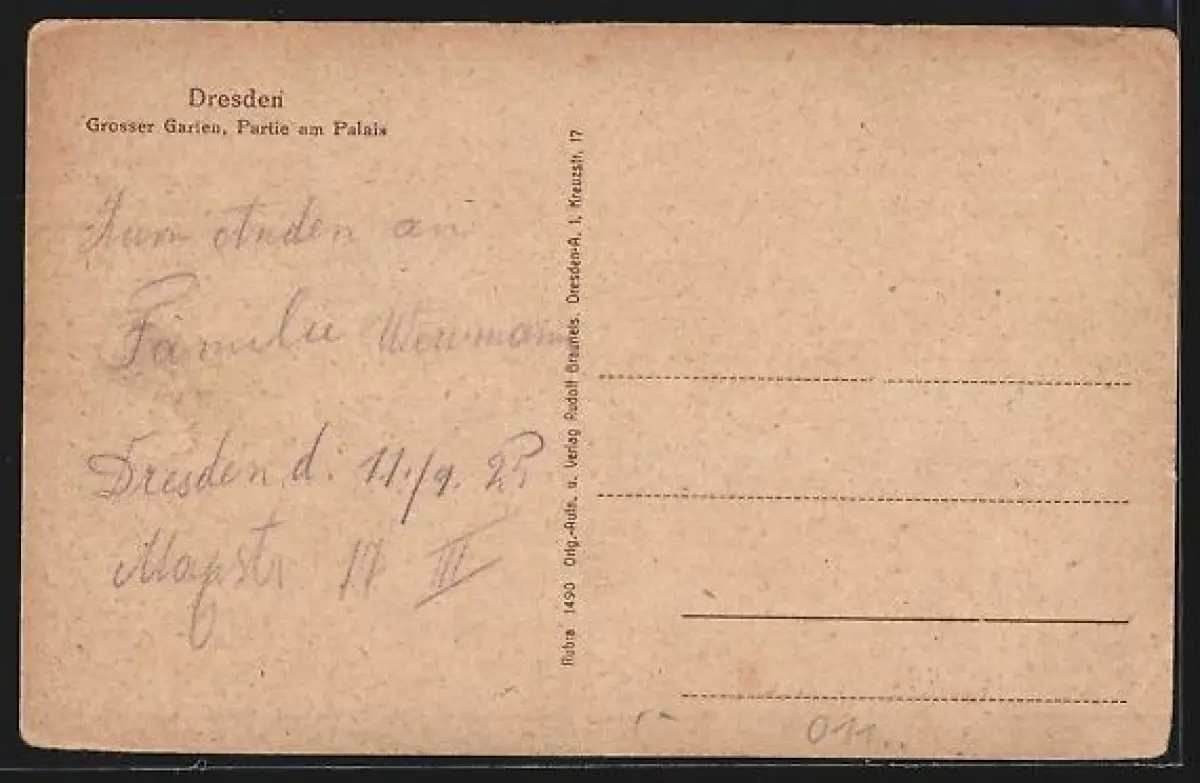 Dresden
Grosser Garten, Partie am Palais
Zum Anden an
Familie
Dresden d. 11./9. 25
17 III
Rubra 1490 Orig.-Aufn. u. Verlag Rudolf Brauneis, Dresden-A. 1, Kreuzstr. 17
011..